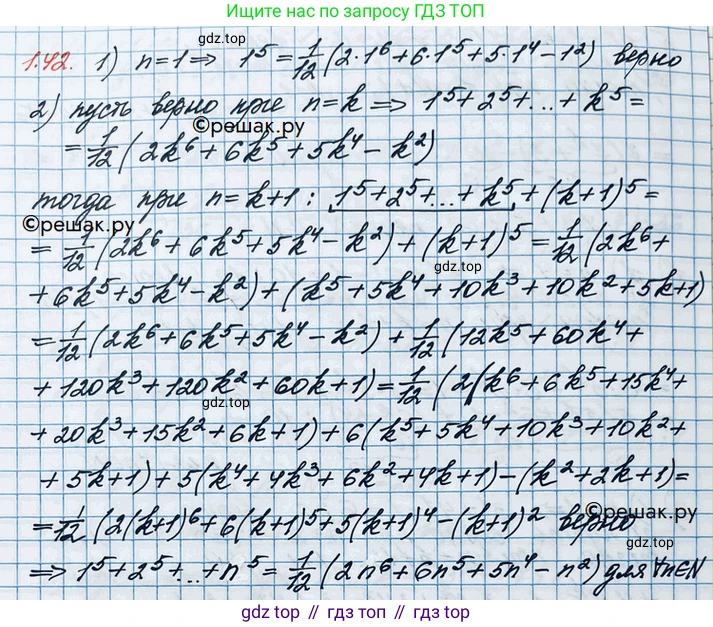 Ищите нас по запросу ГДЗ ТОП
gdz.top
1.42. 1) n=1 ⇒ 1⁵ = 1/12 (2·1⁶+6·1⁵+5·1⁴−1²) верно
2) пусть верно при n=k ⇒ 1⁵+2⁵+...+k⁵=
©решак.ру
= 1/12 (2k⁶+6k⁵+5k⁴−k²)
gdz.top
тогда при n=k+1: 1⁵+2⁵+...+k⁵+(k+1)⁵=
©решак.ру
= 1/12 (2k⁶+6k⁵+5k⁴−k²)+(k+1)⁵= 1/12 (2k⁶+
gdz.top
+6k⁵+5k⁴−k²)+(k⁵+5k⁴+10k³+10k²+5k+1)
= 1/12 (2k⁶+6k⁵+5k⁴−k²)+ 1/12 (12k⁵+60k⁴+
+120k³+120k²+60k+1)= 1/12 (2(k⁶+6k⁵+15k⁴+
gdz.top
+20k³+15k²+6k+1)+6(k⁵+5k⁴+10k³+10k²+
+5k+1)+5(k⁴+4k³+6k²+4k+1)−(k²+2k+1)=
©решак.ру
= 1/12 (2(k+1)⁶+6(k+1)⁵+5(k+1)⁴−(k+1)² верно
gdz.top
⇒ 1⁵+2⁵+...+n⁵= 1/12 (2n⁶+6n⁵+5n⁴−n²) для ∀n∈N
gdz top // гдз топ // gdz.top